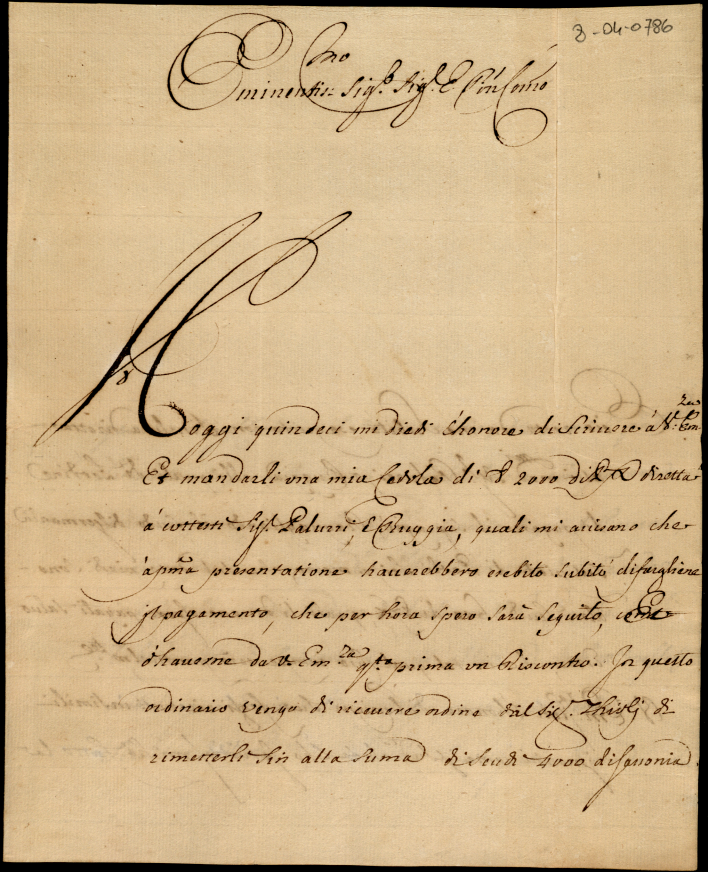 8-04-0786
Eminentis.mo Sig.r Sig.r E Pñ Colmo
Hoggi quindeci mi diedi l'honore di scrivere à V: Em.za
Et mandarli una mia Cedola di 2000 diretta
à cottesti Sig.ri Paluzzi, E Pruggia, quali mi avisano che
à pma presentatione haverebbero esebito subito di fargliene
il pagamento, che per hora spero sarà seguito,
d'haverne da V. Em.za prima un Riscontro. In questo
ordinario vengo di ricevere ordine dal Sig.r di
rimetterli sin alla suma di Scudi 4000 di savonia